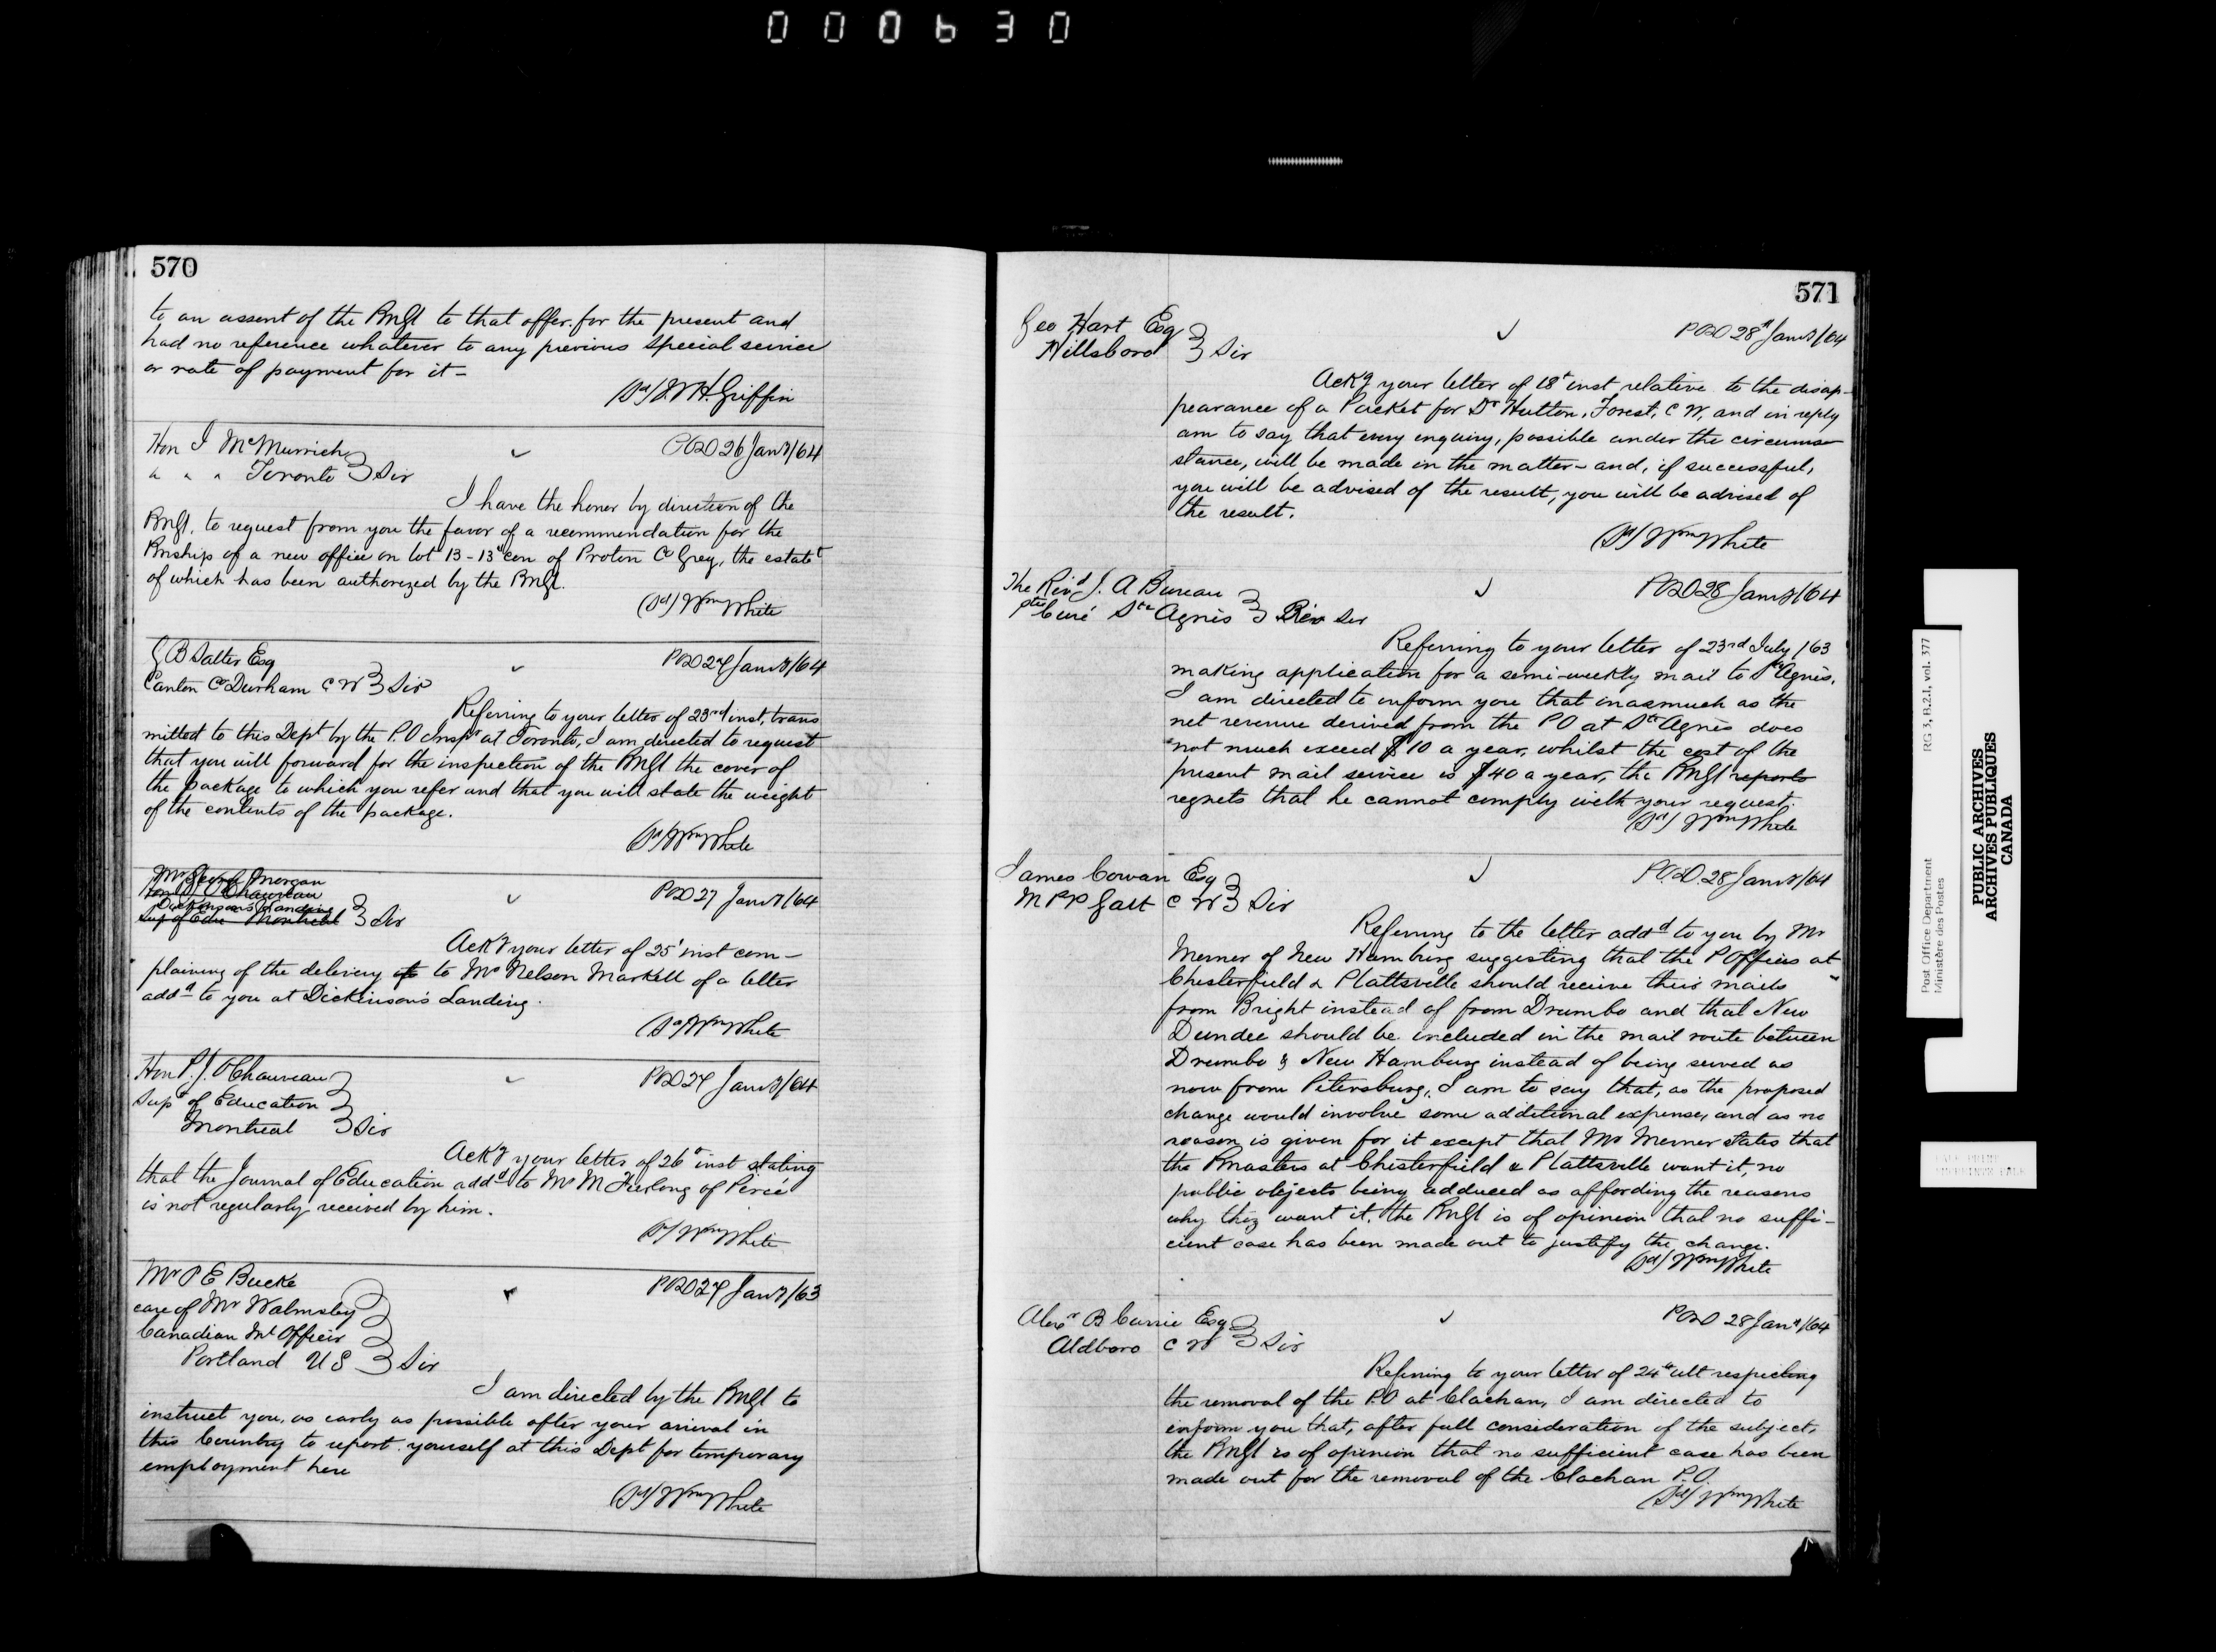 000630
570
to an assent of the PMGl to that offer for the present and
had no reference whatever to any previous special service
or rate of payment for it =
(Sd) W.H. Griffin
Hon J McMurrich
" " " Toronto } Sir
POD 26 Jany/64
I have the honor by direction of the
PMGl. to request from you the favor of a recommendation for the
Pmship of a new office on lot 13 - 13th con of Proton Co Grey, the estabt
of which has been authorized by the PMGl.
(Sd) Wm White
G B Salter Esq
Canton Co Durham C W } Sir
POD 27 Jany/64
Referring to your letter of 23rd inst, trans
mitted to this Dept by the P.O Inspr at Toronto, I am directed to request
that you will forward for the inspection of the PMGl the cover of
the package to which you refer and that you will state the weight
of the contents of the package.
(Sd) Wm White
Mr George Morgan
Hon P J O Chauveau
Dickinsons Landing
Sup of Edu Montreal } Sir
POD 27 Jany/64
Ackg your letter of 25' inst com-
plaining of the delivery of to Mr Nelson Markell of a letter
addd to you at Dickinson's Landing.
(Sd) Wm White
Hon P. J. O Chauveau
Supt of Education
Montreal } Sir
POD 27 Jany/64
Ackg your letter of 26th inst stating
that the Journal of Education addd to Mr M Furlong of Percé
is not regularly received by him.
(Sd) Wm White
Mr P E Bucke
care of Mr Walmsley
Canadian Ml Officer
Portland U S } Sir
POD 27 Jany/63
I am directed by the PMGl to
instruct you, as early as possible after your arival in
this Country to report yourself at this Dept for temporary
employment here
(Sd) Wm White
571
Geo Hart Esq
Hillsboro } Sir
POD 28th Jany/64
Ackg your letter of 18th inst relative to the disap-
pearance of a Packet for Dr Hutton, Forest, C W, and in reply
am to say that every enquiry, possible under the circum
stance, will be made in the matter - and, if successful,
you will be advised of the result, you will be advised of
the result.
(Sd) Wm White
The Revd J. A Bureau
Ptre Curé Ste Agnès } Rev Sir
POD 28 Jany/64
Referring to your letter of 23rd July /63
making application for a semi-weekly mail to Ste Agnès,
I am directed to inform you that inasmuch as the
net revenue derived from the P O at Ste Agnès does
not much exceed $10 a year, whilst the cost of the
present mail service is $40 a year, the PMGl reports
regrets that he cannot comply with your request.
(Sd) Wm White
James Cowan Esq
M P P Galt C W } Sir
P.O.D. 28 Jany/64
Referring to the letter addd to you by Mr
Merner of New Hamburg suggesting that the P Offices at
Chesterfield & Plattsville should receive their mails
from Bright instead of from Drumbo and that New
Dundee should be included in the mail route between
Drumbo & New Hamburg instead of being served as
now from Petersburg, I am to say that, as the proposed
change would involve some additional expense, and as no
reason is given for it except that Mr Merner states that
the Pmasters at Chesterfield & Plattsville want it, no
public objects being adduced as affording the reasons
why they want it, the PMGl is of opinion that no suffi-
cient case has been made out to justify the change.
(Sd) Wm White
Alexr B Currie Esq
Aldboro C W } Sir
POD 28 Jany/64
Referring to your letter of 24th ult respecting
the removal of the P.O at Clachan, I am directed to
inform you that, after full consideration of the subject,
the PMGl is of opinion that no sufficient case has been
made out for the removal of the Clachan P.O.
(Sd) Wm White
Post Office Department
Ministère des Postes
RG 3, B.2.1, vol. 377
PUBLIC ARCHIVES
ARCHIVES PUBLIQUES
CANADA